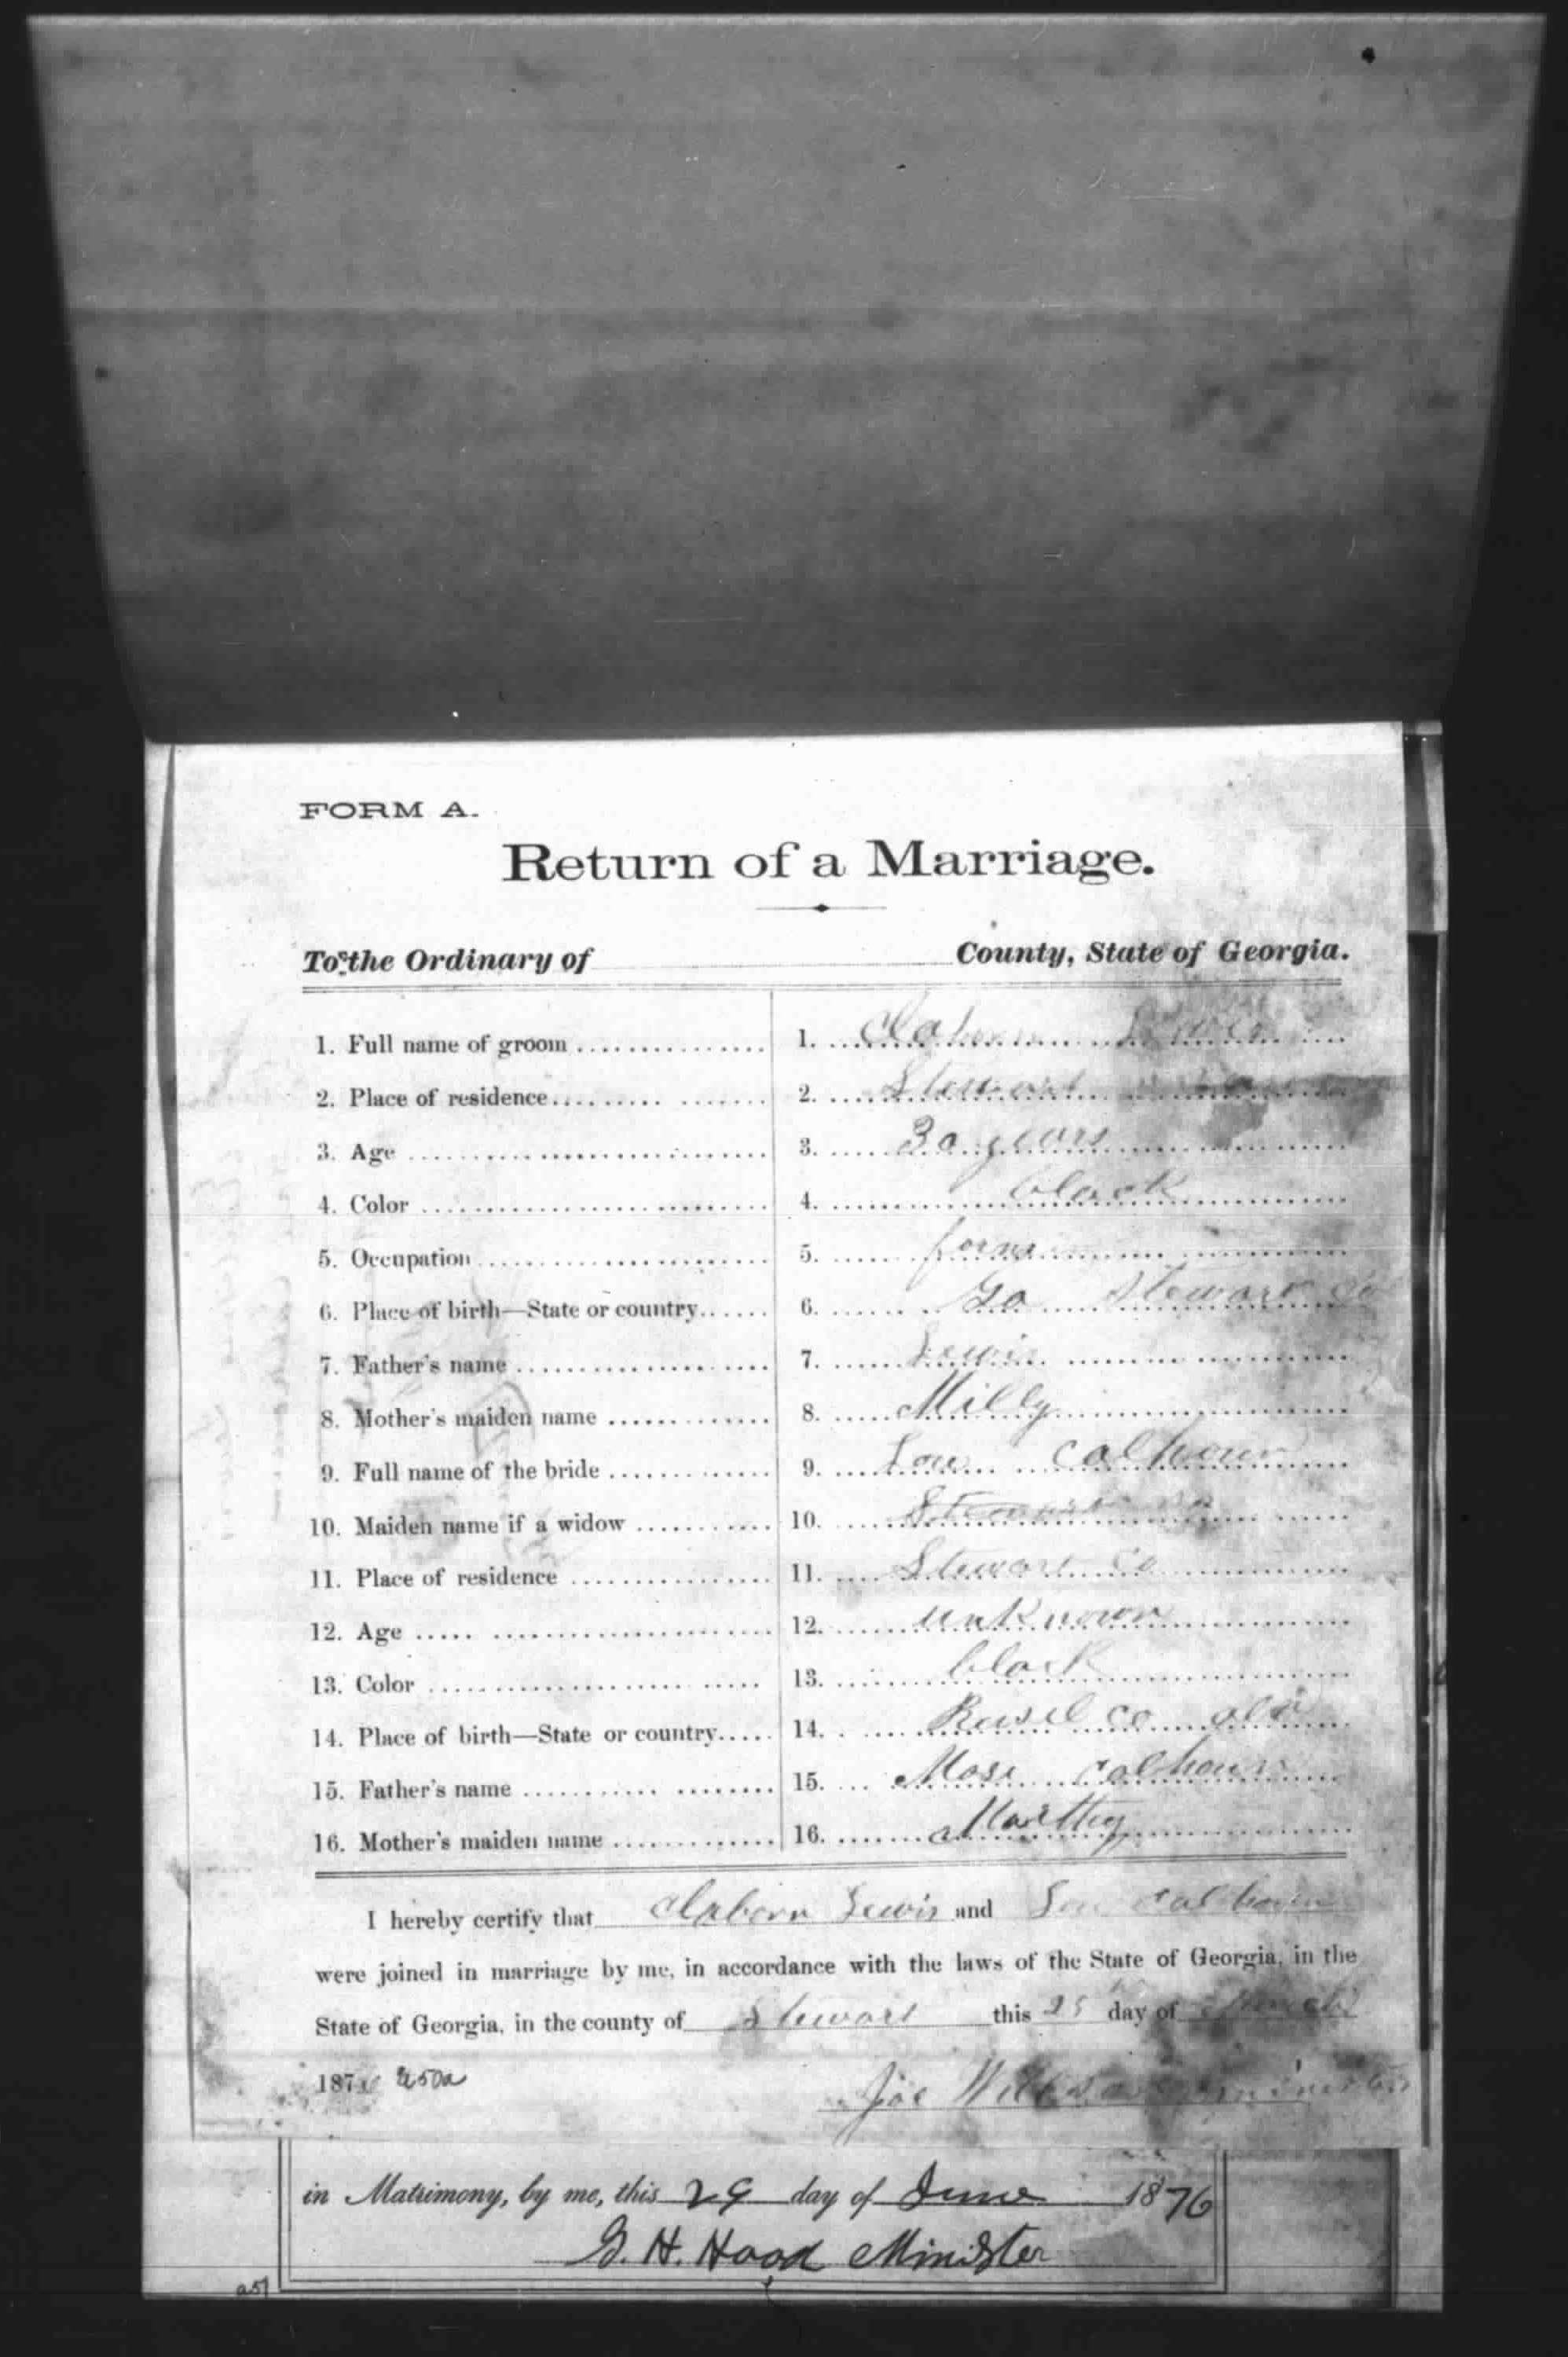 FORM A.
Return of a Marriage.
To the Ordinary of County, State of Georgia.
1. Full name of groom 1. Claborn Lewis
2. Place of residence 2. Stewart
3. Age 3. 30 years
4. Color 4. black
5. Occupation 5. farm
6. Place of birth—State or country 6. Ga Stewart Co
7. Father's name 7. Lewis
8. Mother's maiden name 8. Milly
9. Full name of the bride 9. Lou Calhoun
10. Maiden name if a widow 10. Stewart Co
11. Place of residence 11. Stewart Co
12. Age 12. unKnown
13. Color 13. black
14. Place of birth—State or country 14. Rusel co ala
15. Father's name 15. Mose Calhoun
16. Mother's maiden name 16. Marthy
I hereby certify that Claborn Lewis and Lou Calhoun
were joined in marriage by me, in accordance with the laws of the State of Georgia, in the
State of Georgia, in the county of Stewart this 25 day of March
187 250a
Joe minister
in Matrimony, by me, this 29 day of June 1876
G. H. Hood Minister
251